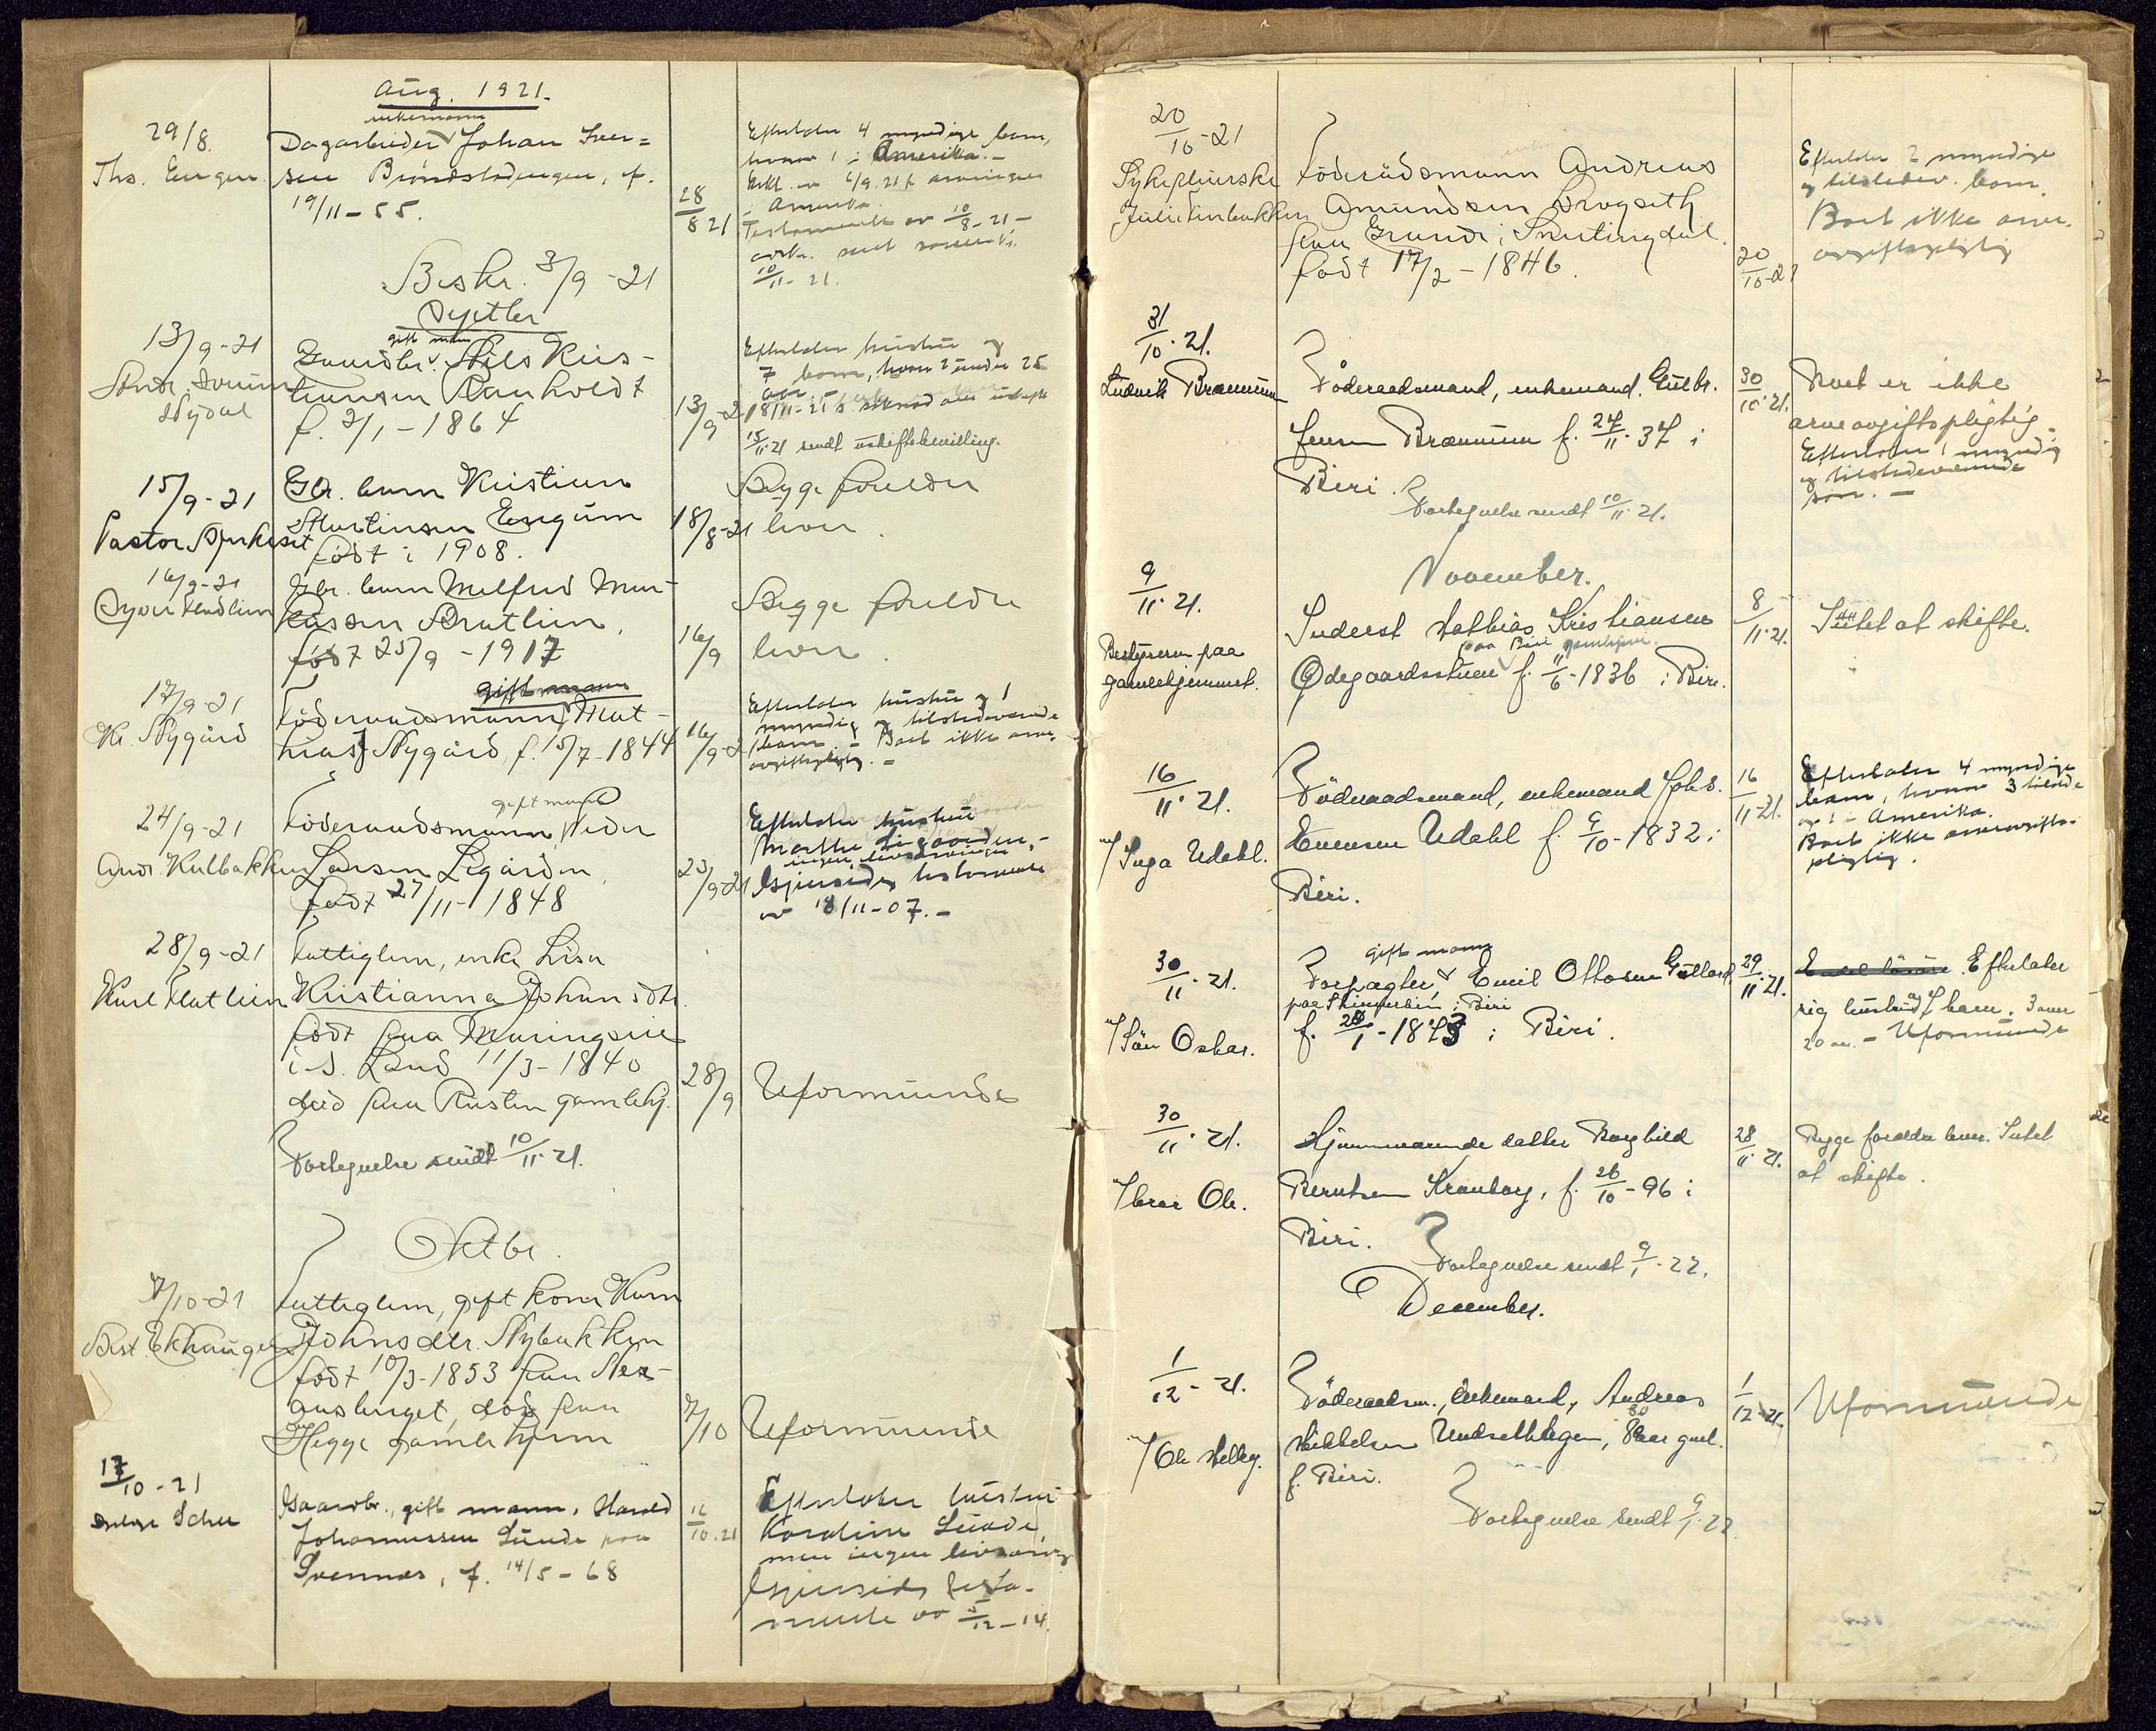 Aug. 1921.
29/8.
Ths. Engen.
enkemann
Dagarbeider Johan Iver=
sen Bröndstadengen, f.
19/11-55.
28/8 21
Efterlater 4 myndige barn,
hvorav 1 i Amerika.-
Erkl. av 6/9.21 fr arvingen
i Amerika.
Testamente av 10/8-21-
10/11-21.
Beskr. 3/9-21
Septbr
13/9-21
Nydal
gift mann
Gaardbr. Nils Kris-
tiansen Ramholdt
f. 2/1-1864
13/9-21
Efterlater hustru og
7 barn, hvorav 2 under 25
aar.
18/11-21
15/11-21 sendt uskiftebevilling.
15/9-21
Pastor Bjerkeset
Gbr. barn Kristian
Martinsen Engum
født i 1908.
18/8-21
Begge foreldre
lever
16/9-21
Syver Kladlien
Gbr. barn Melfred Mar-
kussen Bratlien,
født 25/9-1917
16/9
Begge foreldre
lever.
17/9-21
Kr. Nygård
gift mann
Föderaadsmann Mat-
hias Nygård, f. 15/7-1844
16/9-21
Efterlater hustru og 1
myndig og tilstedeværende
barn.- Boet ikke arve-
avgiftspligtig.-
24/9-21
Andr. Kalbakken
gift mann
Föderaadsmann Peder
Larsen Ligården,
født 27/11-1848
23/9-21
Efterlater hustru
Marthe Ligaarden,-
ingen livsarvinger
Gjensidig testamente
av 18/11-07.-
28/9-21
Karl Flatlien
Fattiglem, enke Lisa
Kristianna Johansdtr.
født paa Maringsie
i S. Land 11/3-1840
død paa Rusten gamlehj.
28/9
Uformuende
Fortegnelse sendt 10/11-21.
Oktbr.
7/10-21
Best. Ekhaugen
Fattiglem, gift kone Karn
Johnsdtr. Nybakken
født 10/3-1853 paa Nes-
auslinget, død paa
Hegge gamlehjem
7/10
Uformuende
17/10-21
Schee
Gaardbr., gift mann, Harald
Johannessen Lunde paa
Svennes, f. 14/5-68
16/10.21
Efterlater hustru
Karoline Lunde,
men ingen livsarving
Gjensidig testa-
mente av 5/12-14.
20/10-21
Sykepleierske
Julie Finbakken
Föderådsmann Andreas
Amundsen Brogseth
paa Grande i Snertingdal.
født 17/2-1846.
20/10-21
Efterlater 2 myndige
og tilstedev. barn.
Boet ikke arve-
avgiftspligtig
31/10-21.
Ludvik Brænnum
Föderaadsmand, enkemand Gulbr.
Jensen Brænnum f. 27/11-37 i
Biri.
30/10-21.
Boet er ikke
arveavgiftspligtig.
Efterlater 1 myndig
og tilstedeværende
søn.-
Fortegnelse sendt 10/11-21.
November.
9/11-21.
Bestyreren paa
gamlehjemmet.
Inderst Mathias Kristiansen
paa Biri gamlehjem.
Ödegaardsstuen f. 11/6-1836 i Biri.
8/11-21.
Intet at skifte.
16/11-21.
v/ Inga Udahl.
Föderaadsmand, enkemand Johs.
Evensen Udahl f. 9/10-1832 i
Biri.
16/11-21.
Efterlater 4 myndige
barn, hvorav 3 tilstede
og 1 i Amerika.
Boet ikke arveavgifts-
pligtig.
30/11-21.
v/ Sön Oskar.
gift mann
Forpagter Emil Ottosen Gullord,
paa Skinnerlien i Biri
f. 20/1-1873 i Biri.
29/11-21.
Efterlater
sig hustru og 7 barn. 3 over
20 aar.- Uformuende
30/11-21.
v/ bror Ole.
Hjemmeværende datter Borghild
Berntsen Kronborg, f. 26/10-96 i
Biri.
28/11-21.
Begge forældre lever. Intet
at skifte.
Fortegnelse sendt 9/1-22.
December.
1/12-21.
v/ Ole Melby.
Föderaadsm., Enkemand, Andreas
Mikkelsen Undsethhagen, 80 aar gml.
f. Biri.
1/12-21.
Uformuende
Fortegnelse sendt 9/1-22.